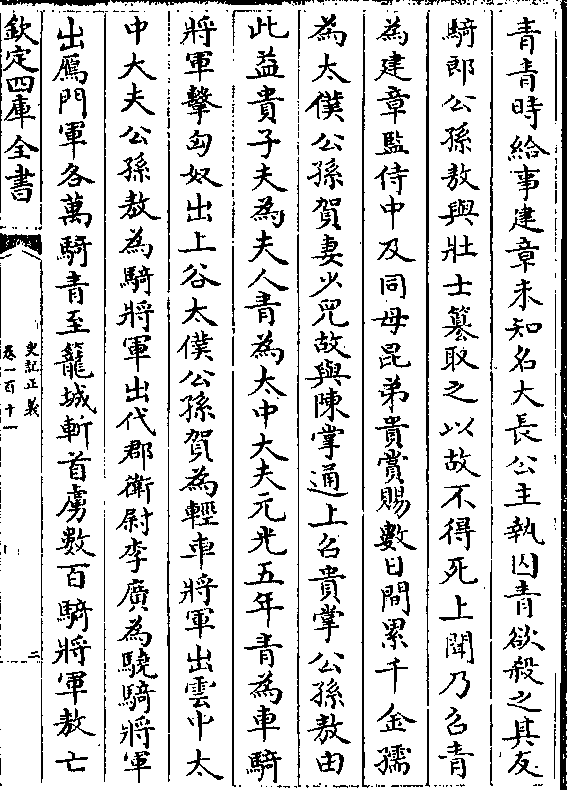 青青時給事建章未知名大長公主執囚青欲殺之其友
騎郎公孫敖與壯士簒取之以故不得死上聞乃召青
為建章監侍中及同母昆弟貴賞賜數日間累千金孺
為太僕公孫賀妻少兒故與陳掌通上召貴掌公孫敖由
此益貴子夫為夫人青為大中大夫元光五年青為車騎
將軍擊匈奴出上谷太僕公孫賀為輕車將軍出雲中太
中大夫公孫敖為騎將軍出代郡衛尉李廣為驍騎將軍
出鴈門軍各萬騎青至籠城斬首虜数百騎將軍敖亡
欽定四庫全書
史記正義
卷一百十一
三